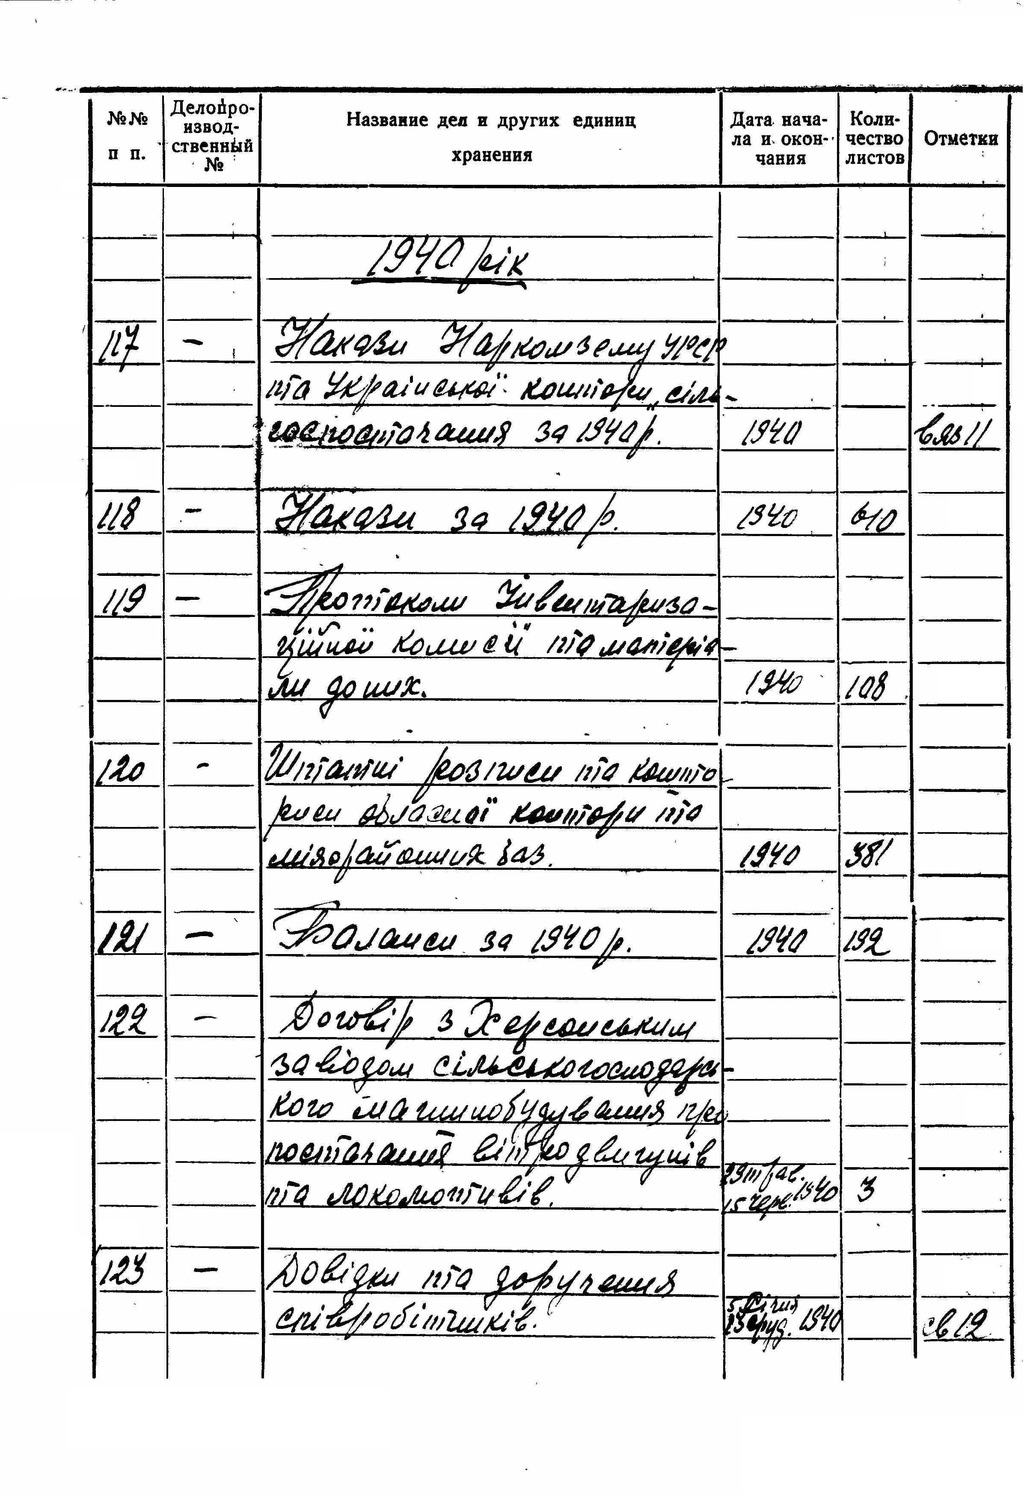 №№ п п.
Делопроизводственный №
Название дел и других единиц хранения
Дата начала и окончания
Количество листов
Отметки
1940 рік
117 — Накази Наркомзему УРСР
та Української контори „сіль-
госпостачання за 1940 р. 1940 вяз 11
118 — Накази за 1940 р. 1940 610
119 — Протоколи Інвентариза-
ційної комисії та матеріа-
ли до них. 1940 108
120 - Штатні розписи та кошто-
риси обласної контори та
міжрайонних баз. 1940 381
121 — Баланси за 1940 р. 1940 192
122 — Договір з Херсонським
заводом сільськогосподарсь-
кого машинобудування про
постачання вітродвигунів
та локомотивів. 29 трав. 15 черв. 1940 3
123 — Довідки та доручення
співробітників. 5 січня груд. 1940 св 12